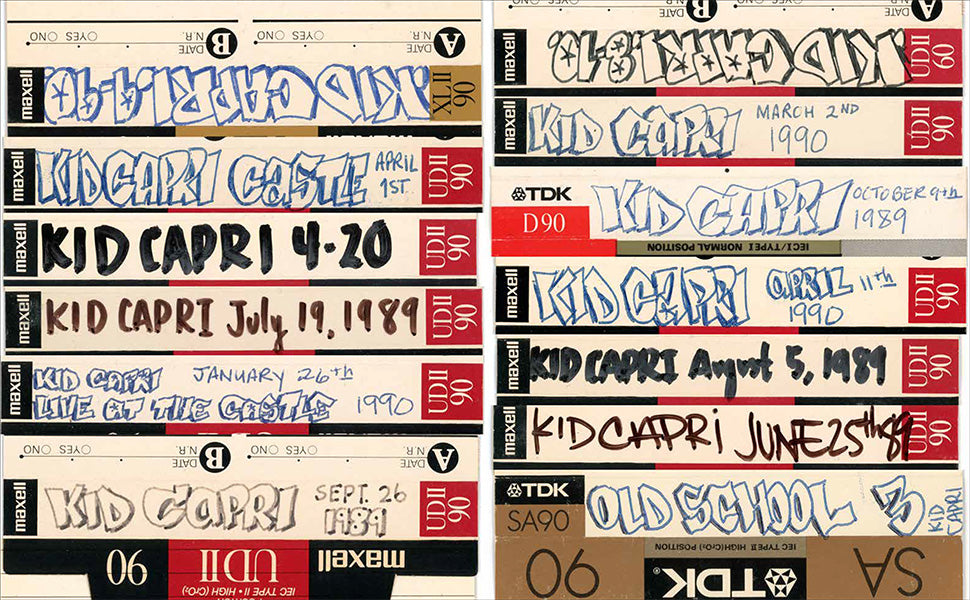 A DATE N.R. YES NO B DATE N.R. YES NO
maxell KID CAPRI XLII 90
maxell
maxell KID CAPRI CASTLE APRIL 1ST. UDII 90
maxell KID CAPRI 4-20 UDII 90
maxell KID CAPRI July 19, 1989 UDII 90
maxell KID CAPRI JANUARY 26th UDII 90
LIVE AT THE CASTLE 1990
A DATE N.R. YES NO B DATE N.R. YES NO
maxell KID CAPRI SEPT. 26 1989 UDII 90
maxell UDII 90
IEC TYPE II • HIGH (CrO₂)
A DATE N.R. YES NO B DATE N.R. YES NO
maxell KID CAPRI UDII 60
maxell KID CAPRI MARCH 2ND 1990 UDII 90
TDK D90 KID CAPRI OCTOBER 9th 1989
IEC I/TYPE I NORMAL POSITION
maxell KID CAPRI APRIL 11th 1990 UDII 90
maxell KID CAPRI August 5, 1989 UDII 90
maxell KID CAPRI JUNE 25th 89 UDII 90
TDK SA90 OLD SCHOOL 3 KID CAPRI
IEC TYPE II HIGH (CrO₂) POSITION
SA TDK 90